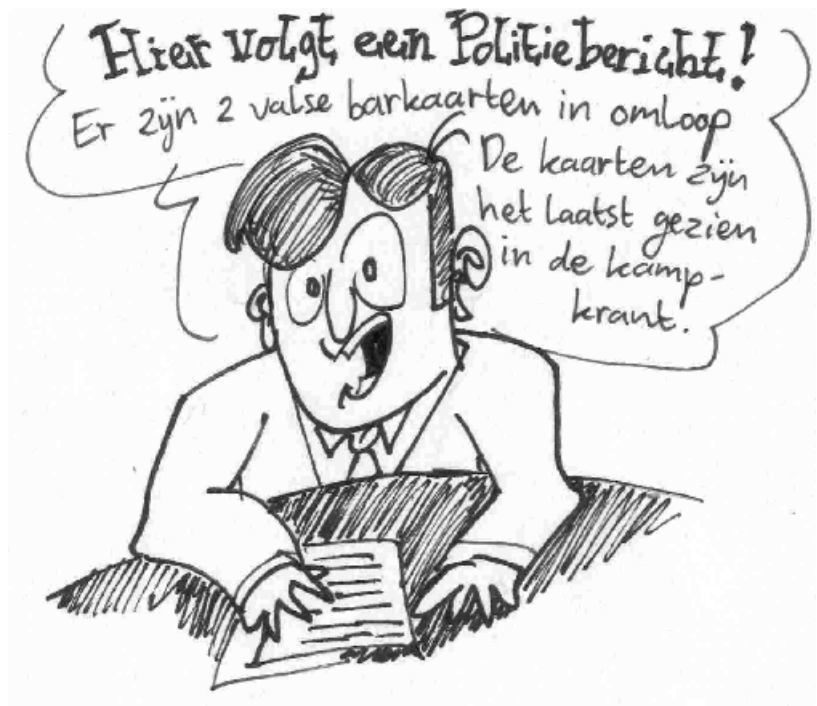 Hier volgt een Politiebericht!
Er zijn 2 valse barkaarten in omloop
De kaarten zijn
het laatst gezien
in de kamp-
krant.